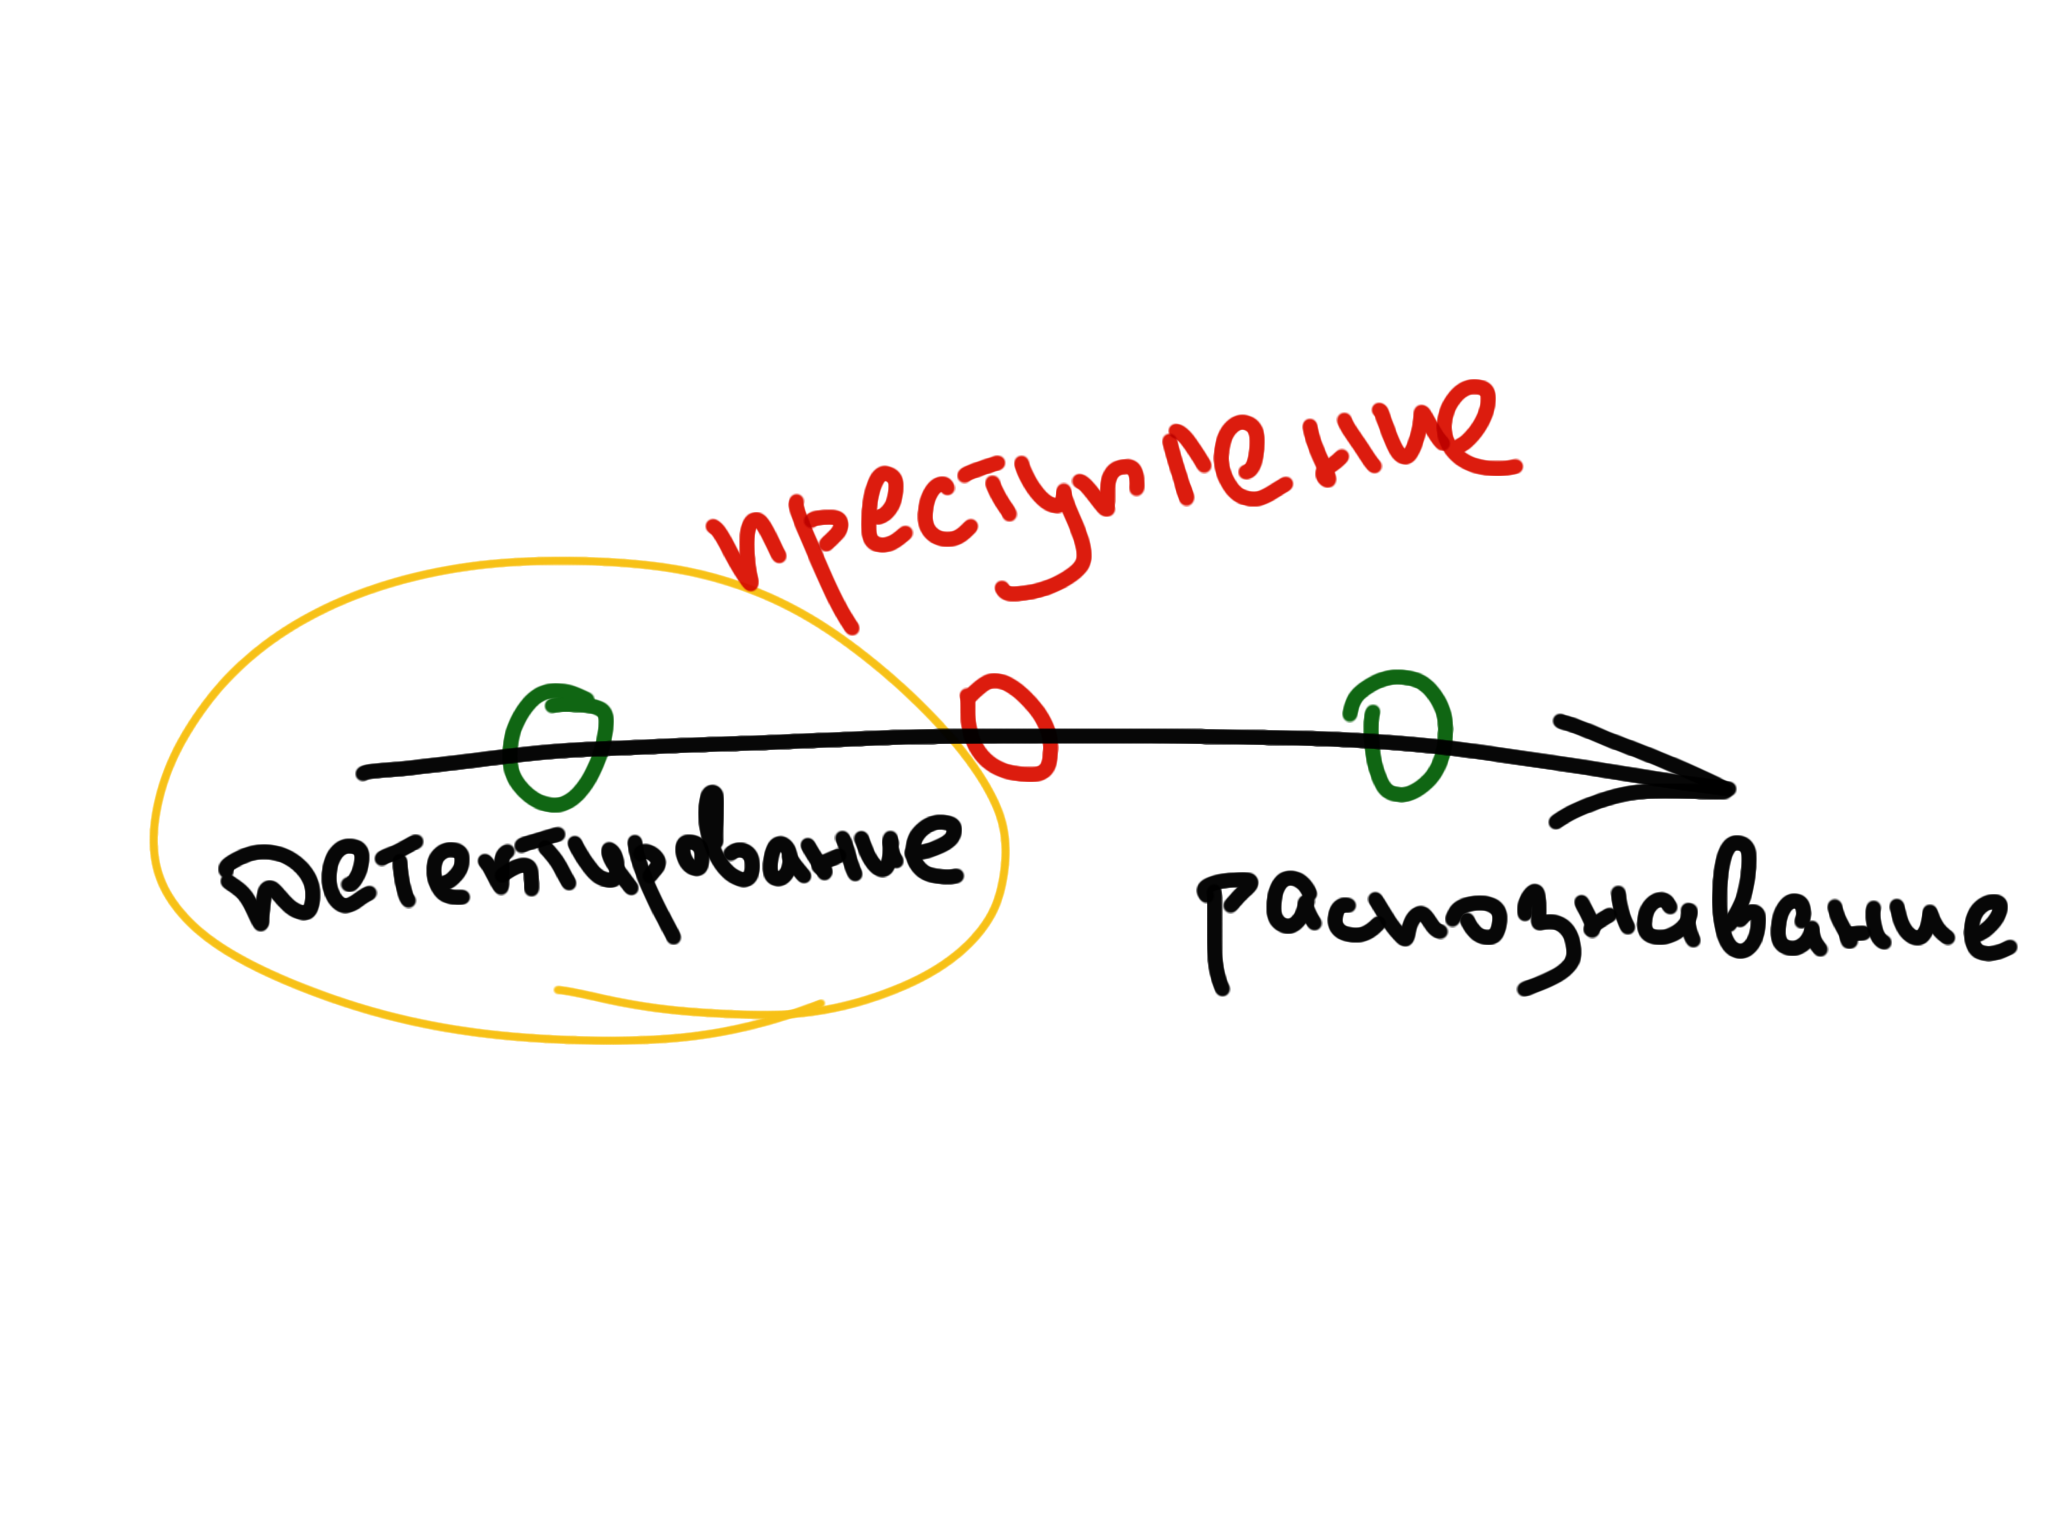 преступление
Детектирование
распознавание